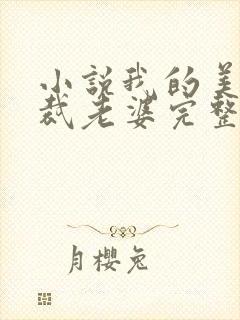 小説我的美
裁老婆完整
月櫻兔